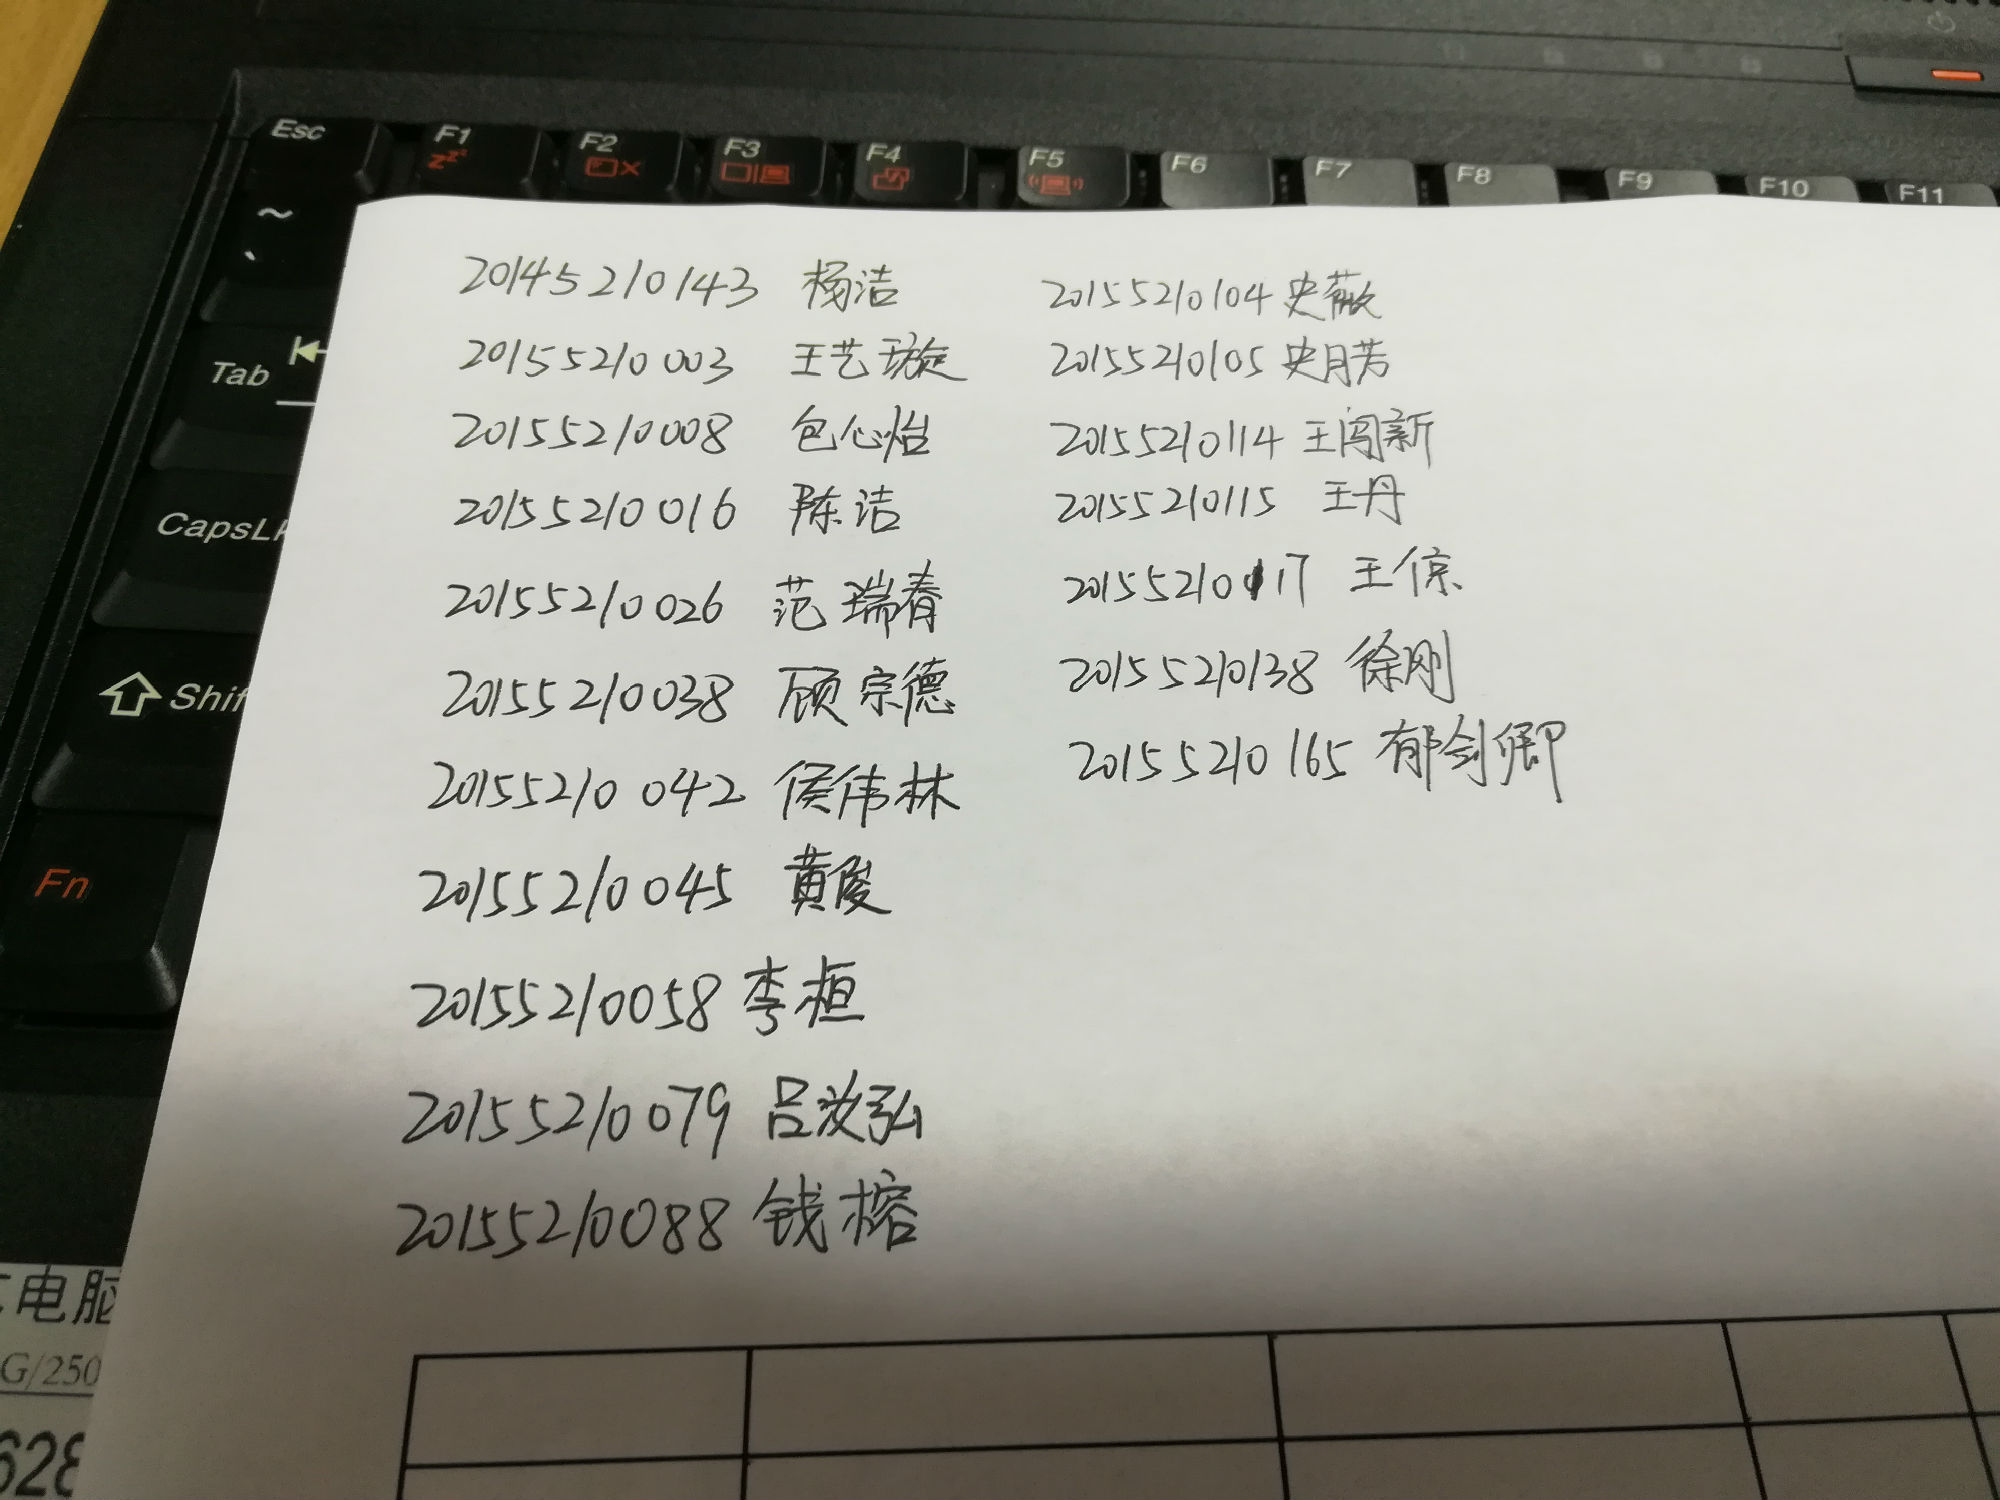 Esc F1 F2 F3 F4 F5 F6 F7 F8 F9 F10 F11
zzz
~
Tab
CapsL
Shif
Fn
20145210143 杨洁
20155210003 王艺璇
20155210008 包心怡
20155210016 陈洁
20155210026 范瑞春
20155210038 顾宗德
20155210042 侯伟林
20155210045 黄俊
20155210058 李桓
20155210079 吕汝弘
20155210088 钱榕
20155210104 史薇
20155210105 史月芳
20155210114 王闯新
20155210115 王丹
20155210117 王倞
20155210138 徐刚
20155210165 郁剑卿
电脑
G/250
628